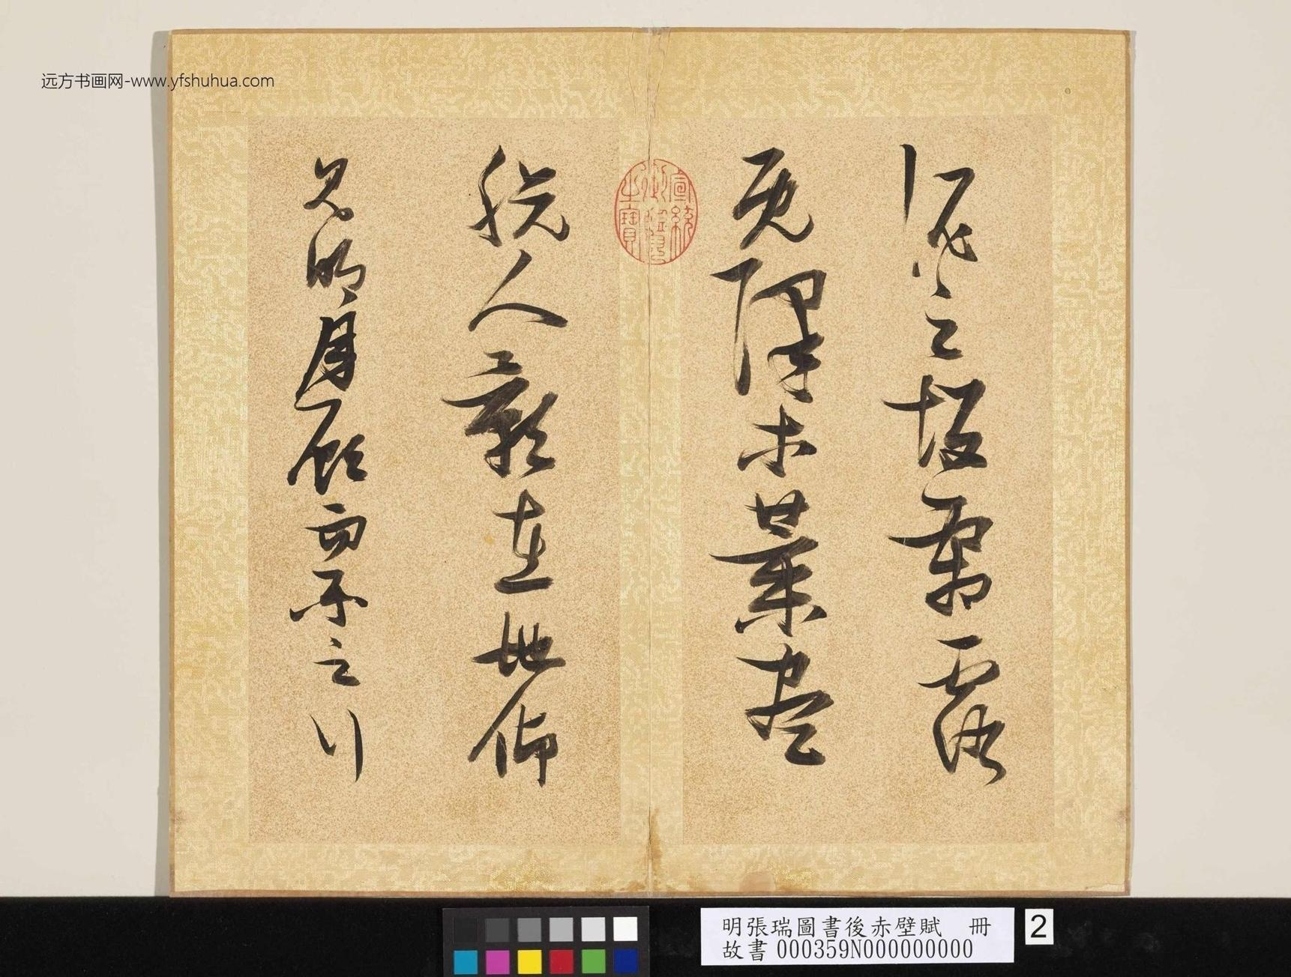 远方书画网-www.yfshuhua.com
泥之坂霜露
既降木葉盡
宣統
御覽
之寶
脫人影在地仰
見明月顧而樂之行
明張瑞圖書後赤壁賦 冊
故書 000359N000000000
2